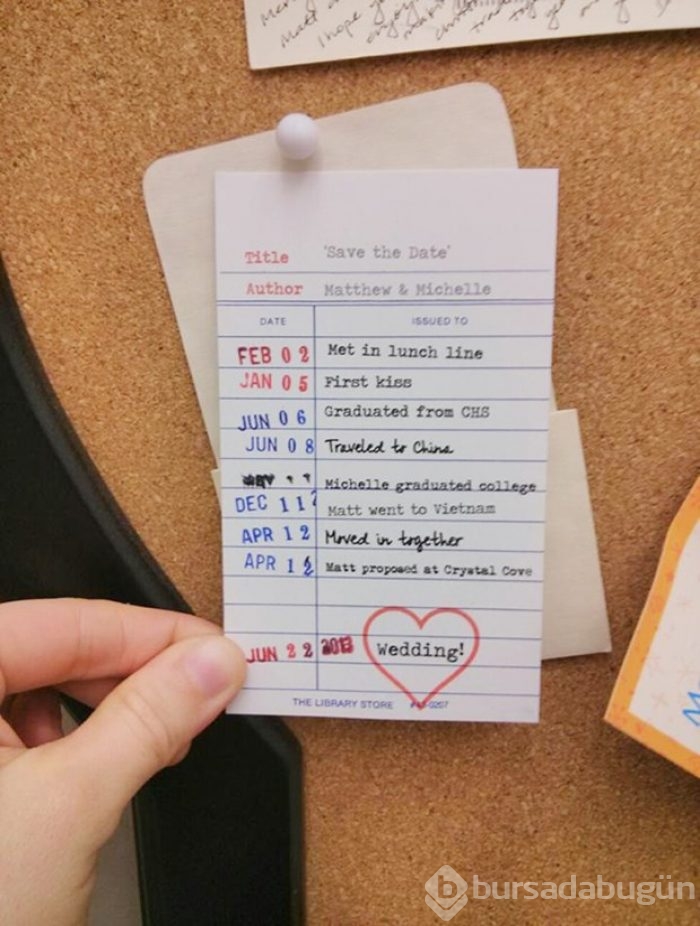 Matt
I hope
Title 'Save the Date'
Author Matthew & Michelle
DATE ISSUED TO
FEB 02 Met in lunch line
JAN 05 First kiss
JUN 06 Graduated from CHS
JUN 08 Traveled to China
MAY 11 Michelle graduated college
DEC 11 Matt went to Vietnam
APR 12 Moved in together
APR 12 Matt proposed at Crystal Cove
JUN 22 2013 Wedding!
THE LIBRARY STORE
bursadabugün